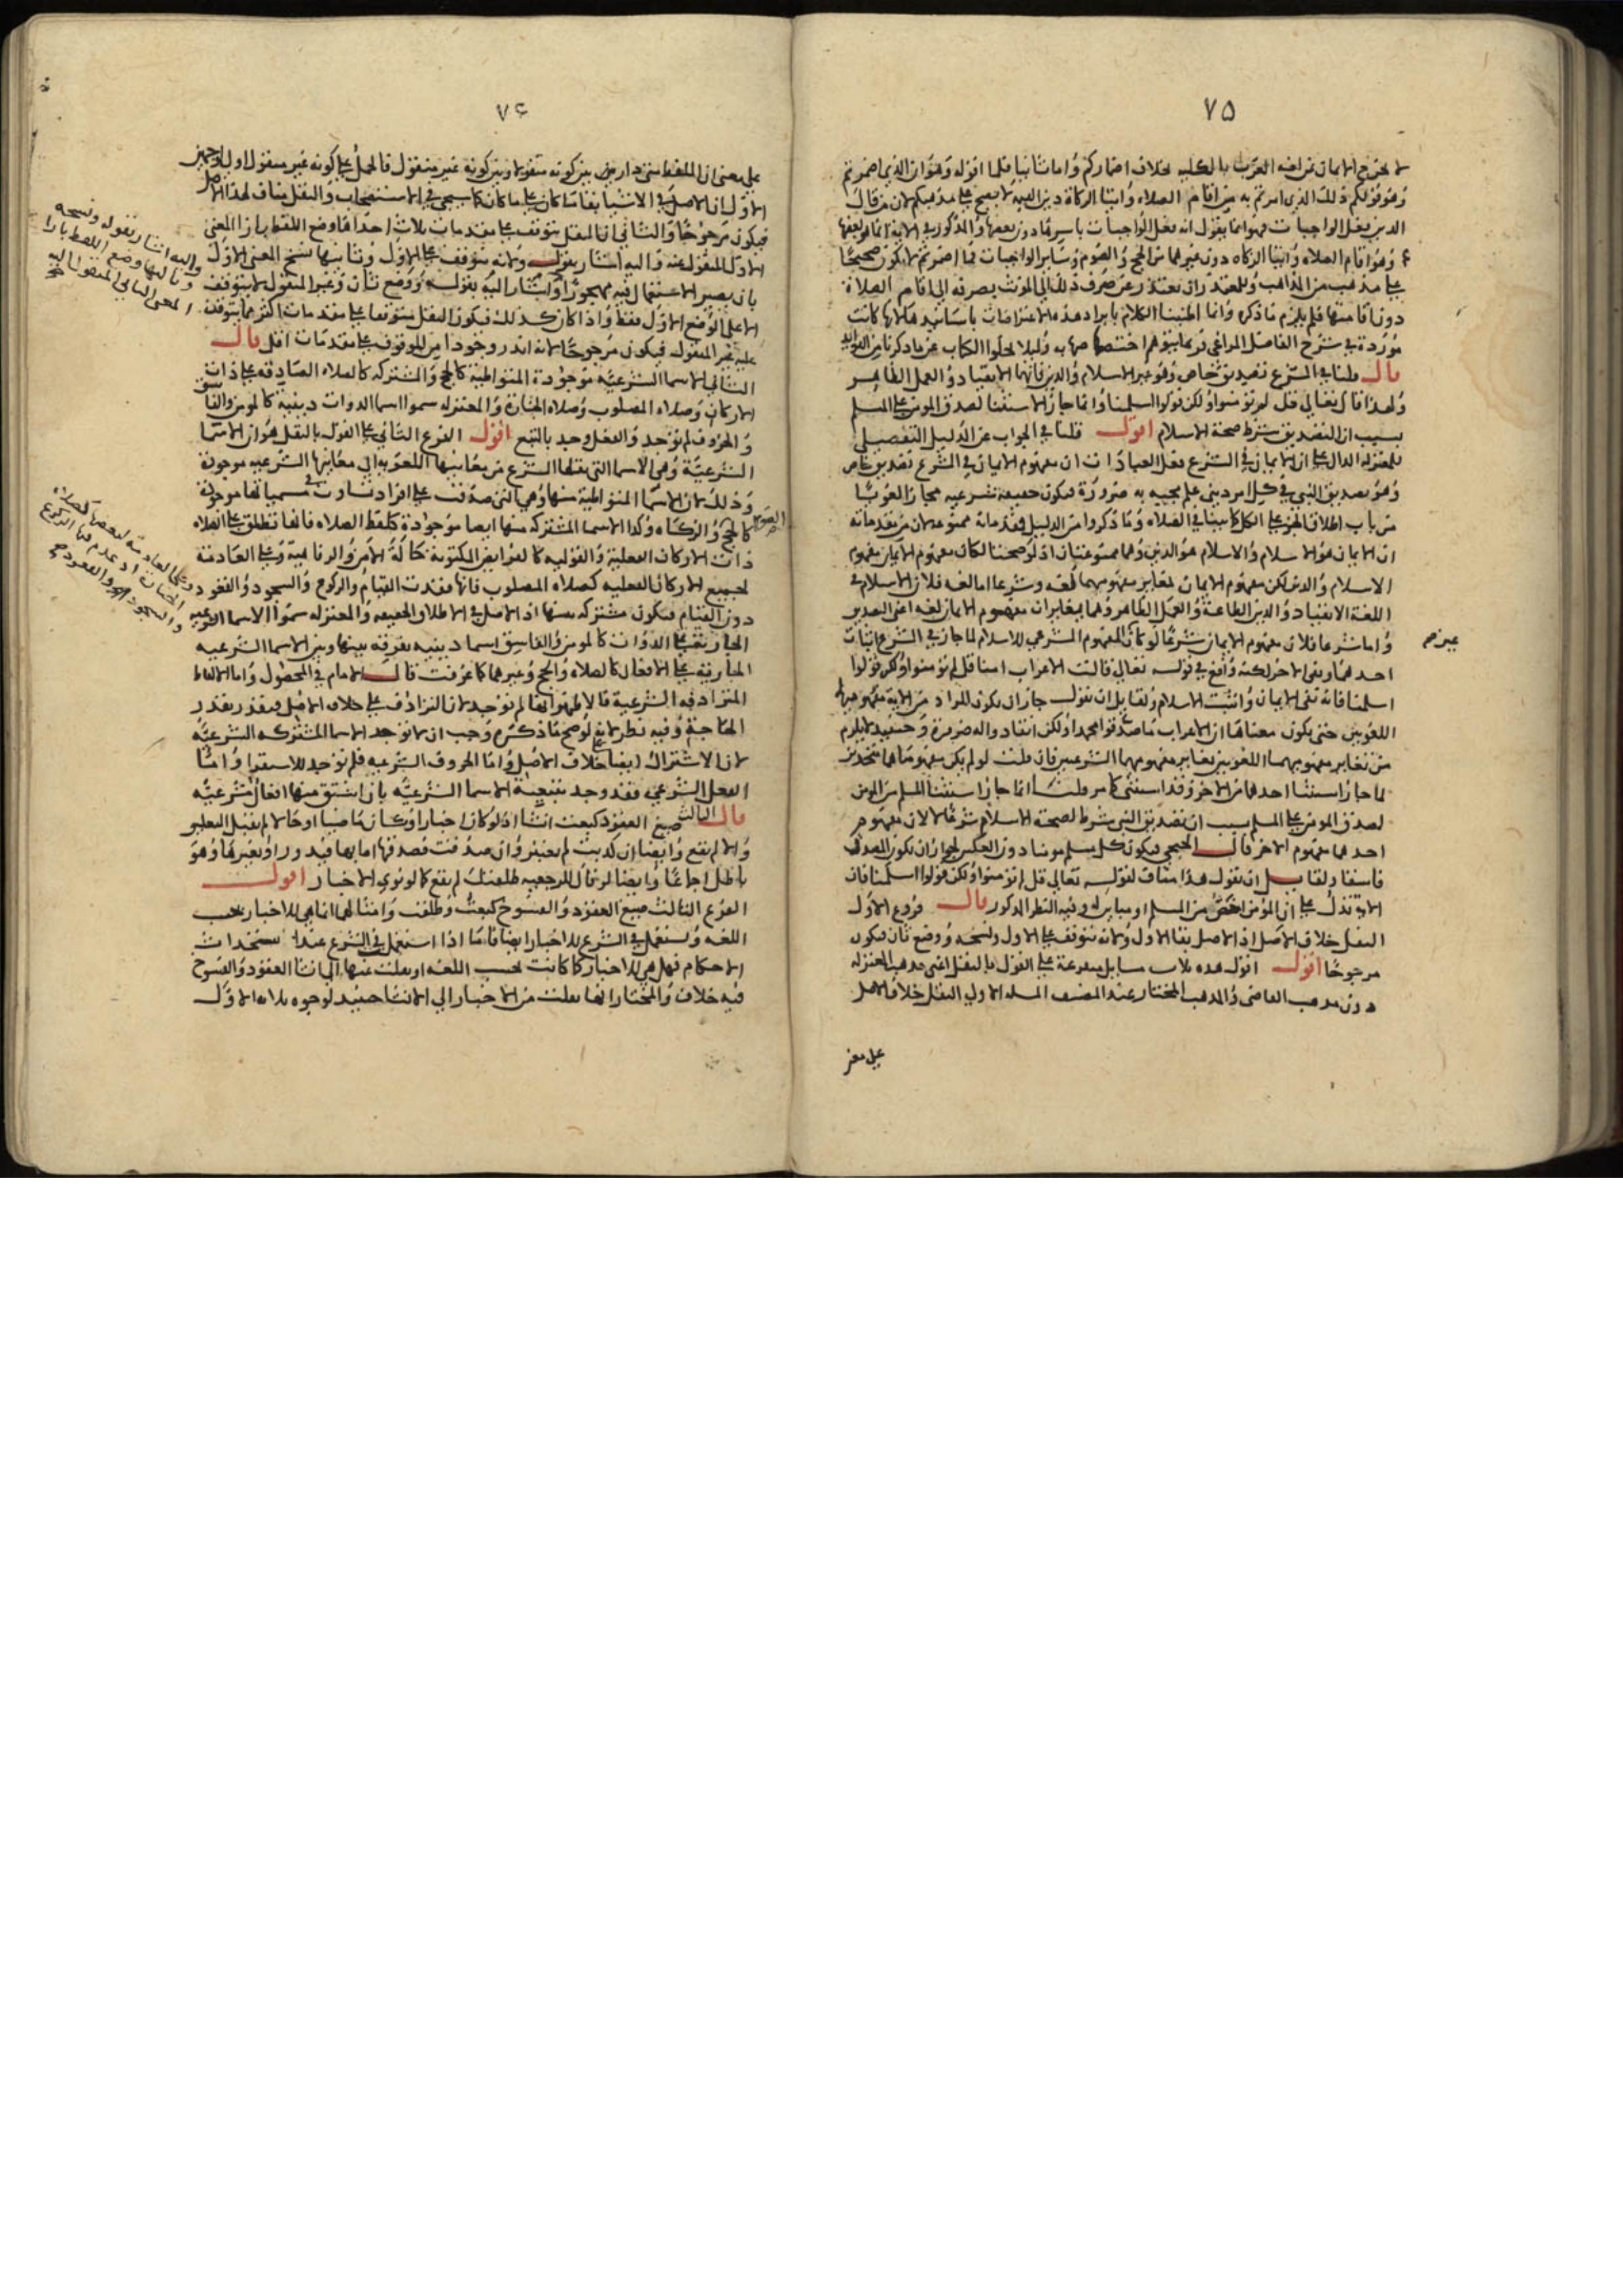 ٧٥
لا يخرج الايمان عن لغه العرب بالكليه بخلاف اضماركم واما ثانيا فلما اقوله وهو ان الذي اضمرتم
وهو قولكم ذلك الذين امرتم به من اقام الصلاه وايتا الزكاة دين القيمه لا يصح على مذهبكم لان من قال
الدين بفعل الواجبات فهو انما يقول انه فعل الواجبات باسرها دون بعضها والمذكور في الاية انما هو بعضها
وهو اقام الصلاه وايتا الزكاه دون غيرهما من الحج والصوم وسائر الواجبات فما اضمرتم لا يكون صحيحا
على مذهب من المذاهب وللمعتذر ان يعتذر عن صرف ذلك الى المونث بصرفه الى اقام الصلاة
دون اقامتها فلم يلزم ما ذكره وانما اطنبنا الكلام بايراد هذه الاعتراضات باسانيدها لانها كانت
موردة في شرح الفاضل المراغي وربما يتوهم اختصاصها به وليلا يخلوا الكتاب عن ما ذكرنا من الفوايد
قال قلنا في الشرع تصديق خاص وهو غير الاسلام والدين فانهما الانقياد والعمل الظاهر
ولهذا قال تعالى قل لم تومنوا ولكن قولوا اسلمنا وانما جاز الاستثنا لصدق المومن على المسلم
بسبب ان التصديق شرط صحة الاسلام اقول قلنا في الجواب عن الدليل التفصيلي
للمعتزله الدال على ان الايمان في الشرع فعل العبادات ان مفهوم الايمان في الشرع تصديق خاص
وهو تصديق النبي في كل امر ديني علم مجييه به ضرورة فيكون حقيقه شرعيه مجازا لغويا
من باب اطلاق الجزء على الكل كما بينا في الصلاه وما ذكروا من الدليل فمقدماته ممنوعه لان من مقدماته
ان الايمان هو الاسلام والاسلام هو الدين وهما ممنوعتان اذ لو صحتا لكان مفهوم الايمان مفهوم
الاسلام والدين لكن مفهوم الايمان مغاير مفهومهما لغه وشرعا اما لغه فلان الاسلام في
اللغة الانقياد والدين الطاعة والعمل الظاهر وهما مغايران مفهوم الايمان لغه اعنى التصديق
واما شرعا فلان مفهوم الايمان شرعا لو كان المفهوم الشرعي للاسلام لما جاز في الشرع اثبات
احدهما ونفى الاخر لكنه واقع في قوله تعالى قالت الاعراب امنا قل لم تومنوا ولكن قولوا
اسلمنا فانه نفى الايمان واثبت الاسلام ولقايل ان يقول جاز ان يكون المراد من الاية مفهوميهما
اللغويين حتى يكون معناها ان الاعراب ما صدقوا محمدا ولكن انقادوا له ضرورة وحينيذ لا يلزم
من تغاير مفهوميهما اللغويين تغاير مفهوميهما الشرعيين فان قلت لو لم يكن مفهوماهما متحدين
لما جاز استثنا احدهما من الاخر وقد استثنى كما مر قلت انما جاز استثنا المسلم من المومن
لصدق المومن على المسلم بسبب ان تصديق النبي شرط لصحة الاسلام شرعا لا لان مفهوم
احدهما مفهوم الاخر قال الخنجي فيكون كل مسلم مومنا دون العكس لجواز ان يكون المصدق
فاسقا ولقايل ان يقول هذا مناف لقوله تعالى قل لم تومنوا ولكن قولوا اسلمنا فان
الاية تدل على ان المومن اخص من المسلم او مباين له وفيه النظر المذكور قال فروع الاول
النقل خلاف الاصل اذ الاصل بقا الاول ولانه يتوقف على الاول ونسخه ووضع ثان فيكون
مرجوحا اقول هذه ثلاث مسايل متفرعة على القول بالنقل اعنى مذهب المعتزله
دون مذهب القاضى والمذهب المختار عند المصنف المسله الاولى النقل خلاف الاصل
على معنى
٧٦
على معنى ان اللفظ متى دار بين كونه منقولا وبين كونه غير منقول فالحمل على كونه غير منقول اولى لوجهين
الاول ان الاصل في الاشيا بقا ما كان على ما كان كما سيجى في الاستصحاب والنقل مناف لهذا الاصل
فيكون مرجوحا والثانى ان النقل يتوقف على مقدمات ثلاث احداها وضع اللفظ بازا المعنى
الاول المنقول عنه واليه اشار بقوله ولانه يتوقف على الاول وثانيها نسخ المعنى الاول
بان يصير الاستعمال فيه مهجورا واشار اليه بقوله ووضع ثان وغير المنقول لا يتوقف
الا على الوضع الاول فقط واذا كان كذلك فيكون النقل متوقفا على مقدمات اكثر مما يتوقف
عليه غير المنقول فيكون مرجوحا لانه اندر وجودا من الموقوف على مقدمات اقل قال
الثانى الاسما الشرعيه موجودة المتواطية كالحج والمشتركه كالصلاه الصادقه على ذات
الاركان وصلاه المصلوب وصلاه الجنازة والمعتزله سموا اسما الذوات دينية كالمومن والفاسق
والحروف لم توجد والفعل وجد بالتبع اقول الفرع الثانى على القول بالنقل هو ان الاسما
الشرعية وهى الاسما التى نقلها الشرع من معانيها اللغويه الى معانيها الشرعيه موجودة
وذلك لان الاسما المتواطية منها وهى التى صدقت على افراد تساوت في مسمياتها موجودة
كالحج والزكاه وكذا الاسما المشتركه منها ايضا موجودة كلفظ الصلاه فانها تطلق على الصلاه
ذات الاركان الفعلية والقوليه كالفرايض المكتوبة حالة الامن والرفاهية وعلى العادمة
لجميع الاركان الفعليه كصلاه المصلوب فانها فقدت القيام والركوع والسجود والقعود
دون القيام فيكون مشتركه بينها اذ الاصل في الاطلاق الحقيقه والمعتزله سموا الاسما الشرعيه
الجاريه على الذوات كالمومن والفاسق اسما دينيه تفرقه بينها وبين الاسما الشرعيه
الجاريه على الافعال كالصلاه والحج وغيرهما كما عرفت قال الامام في المحصول واما الالفاظ
المترادفه الشرعية فالاظهر انها لم توجد لان الترادف على خلاف الاصل فيقدر بقدر
الحاجة وفيه نظر لانه لو صح ما ذكره وجب ان لا توجد الاسما المشتركه الشرعيه
لان الاشتراك ايضا خلاف الاصل واما الحروف الشرعيه فلم توجد للاستقرا واما
الفعل الشرعي فقد وجد بتبعية الاسما الشرعيه بان اشتق منها افعال شرعيه
قال الثالث صيغ العقود كبعت انشا اذ لو كان اخبارا وكان ماضيا او حالا لم يقبل التعليق
والا لم يقع وايضا ان كذبت لم تعتبر وان صدقت فصدقها اما بها فيدور او بغيرها وهو
باطل اجماعا وايضا لو قال للرجعيه طلقتك لم يقع كما لو نوى الاخبار اقول
الفرع الثالث صيغ العقود والفسوخ كبعت وطلقت وامثالها انما هى للاخبار بحسب
اللغه وتستعمل في الشرع للاخبار ايضا فاما اذا استعمل في الشرع عند استحداث
الاحكام فهل هى للاخبار كما كانت بحسب اللغه او نقلت عنها الى انشا العقود والفسوخ
فيه خلاف والمختار انها نقلت من الاخبار الى الانشا حينيذ لوجوه ثلاثه الاول
واليه اشار بقوله ونسخه
وثالثها وضع اللفظ بازا
المعنى الثانى المنقول اليه
وعلى العادمة لبعضها كصلاة
الجنازة اذ عدم فيها الركوع
والسجود والقعود صح